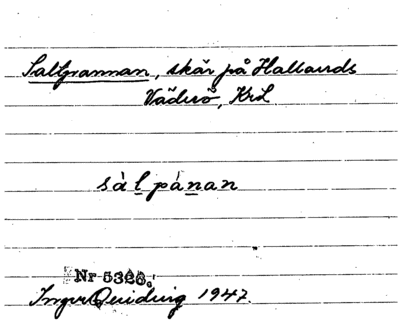 Saltpannan, skär på Hallands
Väderö, KrL
sàl pánan
Nr 5326.
Inger Quiding 1947.